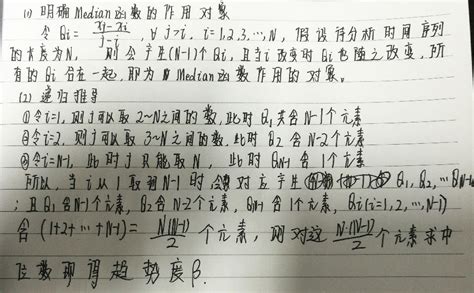 (1) 明确Median函数的作用对象
令 Qi = (xj-xi)/(j-i), ∀ j>i, i=1,2,3,…,N, 假设待分析时间序列
的长度为N, 则会产生(N-1)个Qi, 且当i改变时Qi也随之改变, 所
有的Qi合在一起, 即为Median函数作用的对象。
(2) 递归推导
①令i=1, 则j可以取2~N之间的数, 此时Q1共含N-1个元素
②令i=2, 则j可以取3~N之间的数, 此时Q2含N-2个元素
③令i=N-1, 此时j只能取N, 此时QN-1含1个元素
所以, 当i从1取到N-1时, 会对应产生 Q1, Q2, … QN-1
; 且Q1含N-1个元素, Q2含N-2个元素, QN-1含1个元素, Qi(i=1,2,…,N-1)
含(1+2+…+N-1) = N(N-1)/2 个元素, 则对这 N(N-1)/2 个元素求中
位数即得趋势度β.